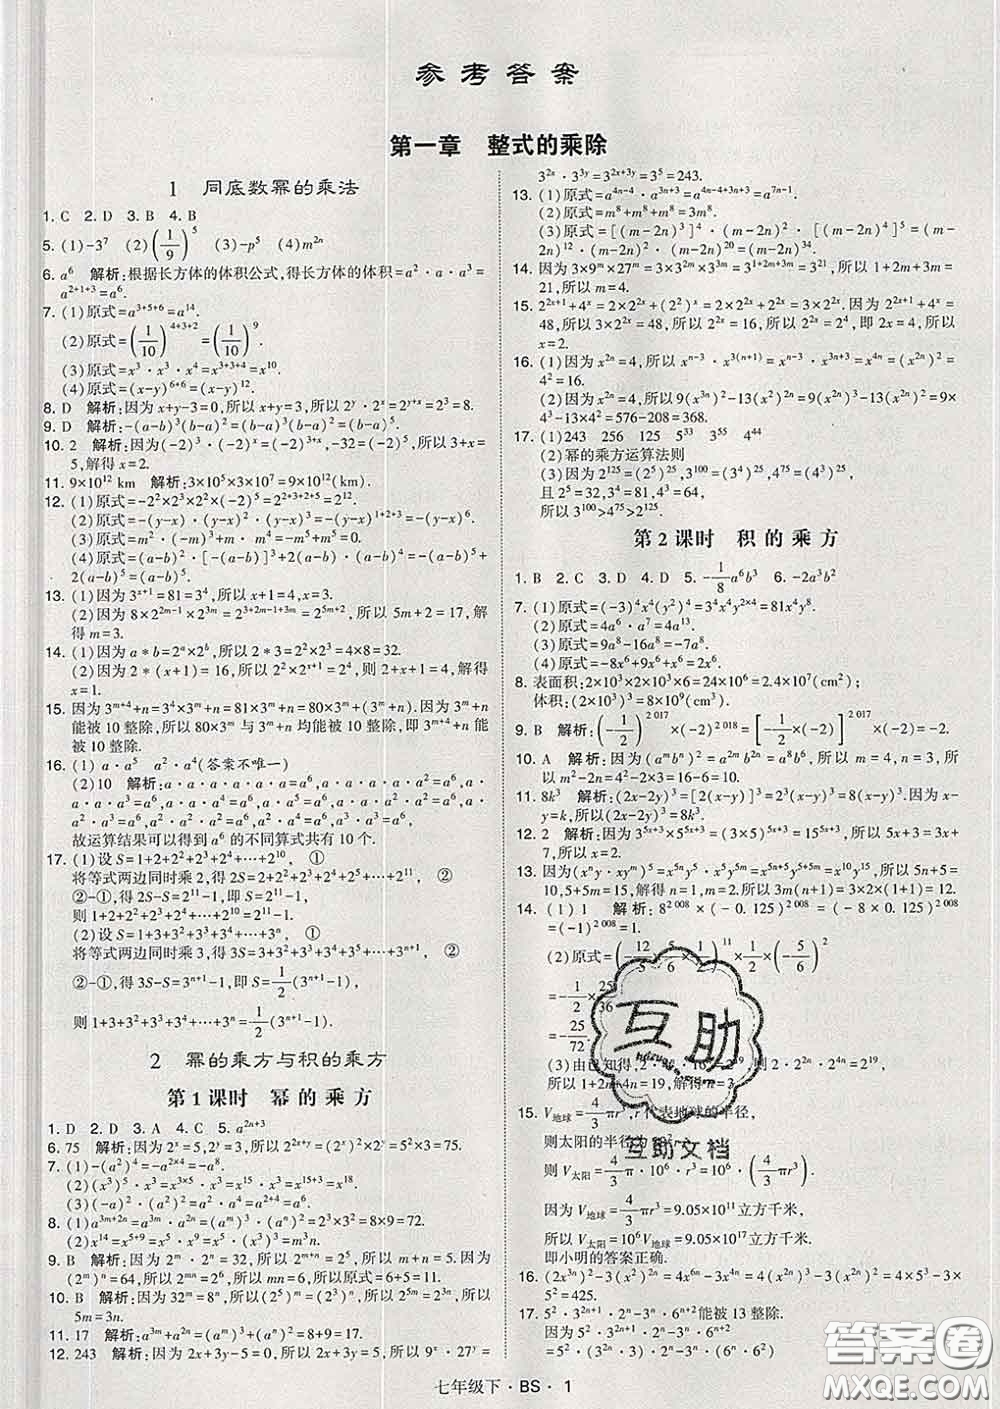 参考答案
第一章 整式的乘除
1 同底数幂的乘法
1. C 2. D 3. B 4. B
5. (1)-3⁷ (2)(1/9)⁵ (3)-p⁵ (4)m²ⁿ
6. a⁶ 解析:根据长方体的体积公式,得长方体的体积=a²·a·a³=
a²⁺¹⁺³=a⁶.
7. (1)原式=a³⁺⁵⁺⁶=a¹⁴.
(2)原式=(1/10)⁴⁺³⁺²=(1/10)⁹.
(3)原式=x³·x³·x⁴=x³⁺³⁺⁴=x¹⁰.
(4)原式=(x-y)⁶⁺⁶=(x-y)¹².
8. D 解析:因为x+y-3=0,所以x+y=3,所以2ʸ·2ˣ=2ˣ⁺ʸ=2³=8.
9. D 解析:-(a-b)³(b-a)²=(b-a)³(b-a)²=(b-a)⁵.
10. 2 解析:因为(-2)³·(-2)ˣ=(-2)³⁺ˣ,-32=(-2)⁵,所以3+x=
5,解得x=2.
11. 9×10¹² km 解析:3×10⁵×3×10⁷=9×10¹²(km).
12. (1)原式=-2²×2³×2²×(-2)⁵=2²⁺³⁺²⁺⁵=2¹².
(2)原式=-(y-x)·(y-x)²·(y-x)³=-(y-x)¹⁺²⁺³=-(y-x)⁶.
(3)原式=m²·(-m)·m-m⁴=-m⁴+m⁴=0.
(4)原式=(a-b)²·[-(a-b)³]+2(a-b)·(a-b)⁴=-(a-b)⁵+
2(a-b)⁵=(a-b)⁵.
13. (1)3ˣ⁺¹=81=3⁴,所以x+1=4,x=3.
(2)因为8×2²ᵐ⁻¹×2³ᵐ=2³×2²ᵐ⁻¹×2³ᵐ=2³⁺²ᵐ⁻¹⁺³ᵐ=2¹⁷,所以5m+2=17,解
得m=3.
14. (1)因为a*b=2ᵃ×2ᵇ,所以2*3=2²×2³=4×8=32.
(2)因为2*(x+1)=16,所以2²×2ˣ⁺¹=2⁴,则2+x+1=4,解得
x=1.
15. 因为3ᵐ⁺⁴+n=3⁴×3ᵐ+n=81×3ᵐ+n=80×3ᵐ+(3ᵐ+n).因为3ᵐ+n
能被10整除,所以80×3ᵐ与3ᵐ+n均能被10整除,即3ᵐ⁺⁴+n能
被10整除.
16. (1)a·a⁵ a²·a⁴(答案不唯一)
(2)10 解析:因为a·a⁵=a⁶,a²·a⁴=a⁶,a³·a³=a⁶,a·
a·a⁴=a⁶,

故运算结果可以得到a⁶的不同算式共有10个.
17. (1)设S=1+2+2²+2³+2⁴+…+2¹⁰, ①
将等式两边同时乘2,得2S=2+2²+2³+2⁴+2⁵+…+2¹¹, ②
②-①,得2S-S=2¹¹-1,即S=2¹¹-1,
则1+2+2²+2³+2⁴+…+2¹⁰=2¹¹-1.
(2)设S=1+3+3²+3³+3⁴+…+3ⁿ, ①
将等式两边同时乘3,得3S=3+3²+3³+3⁴+3⁵+…+3ⁿ⁺¹, ②
②-①,得3S-S=3ⁿ⁺¹-1,即S=1/2(3ⁿ⁺¹-1),
则1+3+3²+3³+3⁴+…+3ⁿ=1/2(3ⁿ⁺¹-1).
2 幂的乘方与积的乘方
第1课时 幂的乘方
1. D 2. D 3. D 4. A 5. a²ⁿ⁺³
6. 75 解析:因为2ˣ=5,2ʸ=3,所以2²ˣ⁺ʸ=(2ˣ)²×2ʸ=5²×3=75.
7. (1)-(a²)⁴=-a²ˣ⁴=-a⁸.
(2)(x³)⁵·x=x³ˣ⁵·x=x¹⁵·x=x¹⁶.
(3)(-a)²·(a²)²=a²·a⁴=a²⁺⁴=a⁶.
8. (1)a³ᵐ⁺²ⁿ=a³ᵐ·a²ⁿ=(aᵐ)³·(aⁿ)²=2³×3²=8×9=72.
(2)x¹⁴=x⁵⁺⁹=x⁵·x⁹=x⁵·(x³)³=m³n.
9. B 解析:因为2ᵐ·2ⁿ=32,所以2ᵐ⁺ⁿ=2⁵,所以m+n=5.因为
(2ᵐ)ⁿ=64,所以2ᵐⁿ=2⁶,所以mn=6,所以原式=6+5=11.
10. B 解析:因为32ᵐ=8ⁿ,所以(2⁵)ᵐ=(2³)ⁿ,所以2⁵ᵐ=2³ⁿ,所以
5m=3n.
11. 17 解析:a³ᵐ+a²ⁿ=(aᵐ)³+(aⁿ)²=8+9=17.
12. 243 解析:因为2x+3y-5=0,所以2x+3y=5,所以9ˣ·27ʸ=
3²ˣ·3³ʸ=3²ˣ⁺³ʸ=3⁵=243.
13. (1)原式=a⁴ⁿ⁻⁴·a³ⁿ⁺³=a⁴ⁿ⁻⁴⁺³ⁿ⁺³=a⁷ⁿ⁻¹.
(2)原式=m⁸+m⁸+m⁸=3m⁸.
(3)原式=[(m-2n)³]⁴·[(m-2n)⁴]⁵·(m-2n)=(m-
2n)¹²·(m-2n)²⁰·(m-2n)=(m-2n)³³.
14. 因为3×9ᵐ×27ᵐ=3×3²ᵐ×3³ᵐ=3¹⁺²ᵐ⁺³ᵐ=3²¹,所以1+2m+3m=
21,所以m=4.
15. 2²ˣ⁺¹+4ˣ=2×2²ˣ+(2²)ˣ=2×2²ˣ+2²ˣ=3×2²ˣ.因为2²ˣ⁺¹+4ˣ=
48,所以3×2²ˣ=48,所以2²ˣ=16,所以2²ˣ=2⁴,即2x=4,所以
x=2.
16. (1)因为x²ⁿ=4,所以xⁿ⁻³·x³⁽ⁿ⁺¹⁾=xⁿ⁻³·x³ⁿ⁺³=x⁴ⁿ=(x²ⁿ)²=
4²=16.
(2)因为x²ⁿ=4,所以9(x³ⁿ)²-13(x²)²ⁿ=9(x²ⁿ)³-13(x²ⁿ)²=9×
4³-13×4²=576-208=368.
17. (1)243 256 125 5³ 3⁵⁵ 4⁴⁴
(2)幂的乘方运算法则
(3)因为2¹²⁵=(2⁵)²⁵,3¹⁰⁰=(3⁴)²⁵,4⁷⁵=(4³)²⁵,
且2⁵=32,3⁴=81,4³=64,
所以3¹⁰⁰>4⁷⁵>2¹²⁵.
第2课时 积的乘方
1. B 2. C 3. D 4. D 5. -1/8a⁶b³ 6. -2a³b²
7. (1)原式=(-3)⁴x⁴(y²)⁴=3⁴x⁴y²ˣ⁴=81x⁴y⁸.
(2)原式=4a⁶·a⁷=4a¹³.
(3)原式=9a⁸-16a⁸=-7a⁸.
(4)原式=-8x⁶+9x⁶+x⁶=2x⁶.
8. 表面积:2×10³×2×10³×6=24×10⁶=2.4×10⁷(cm²);
体积:(2×10³)³=8×10⁹(cm³).
9. B 解析:(-1/2)²⁰¹⁷×(-2)²⁰¹⁸=[-1/2×(-2)]²⁰¹⁷×(-2)=-2.
10. A 解析:因为(aᵐbⁿ)²=a²ᵐb²ⁿ=a⁸b⁶,所以m=4,n=3,所
以m²-2n=4²-2×3=16-6=10.
11. 8k³ 解析:(2x-2y)³=[2(x-y)]³=2³(x-y)³=8(x-y)³.因为x-
y=k,所以(2x-2y)³=8k³.
12. 2 解析:因为3⁵ˣ⁺³×5⁵ˣ⁺³=(3×5)⁵ˣ⁺³=15⁵ˣ⁺³,所以5x+3=3x+
7,所以x=2.
13. 因为(xⁿy·xyᵐ)⁵=x⁵ⁿy⁵·x⁵y⁵ᵐ=x⁵ⁿ⁺⁵y⁵⁺⁵ᵐ=x¹⁰y¹⁵,所以5n+5=
10,5+5m=15,解得n=1,m=2,所以3m(n+1)=3×2×(1+1)=12.
14. (1)1 解析:8²⁰⁰⁸×(-0.125)²⁰⁰⁸=(-8×0.125)²⁰⁰⁸
=(-1)²⁰⁰⁸=1.
(2)原式=

(3)由已知得,2·2²ⁿ·2⁴ⁿ=2¹⁹,
所以1+2n+4n=19,解得n=3.
15. V地球=4/3πr³,r代表地球的半径,
则太阳的半径为10²r,
则V太阳=4/3π·10⁶·r³=10⁶×(4/3πr³).
因为V地球=4/3πr³=9.05×10¹¹立方千米,
所以V太阳=10⁶V地球=9.05×10¹⁷立方千米,
即小明的答案正确.
16. (2x³ⁿ)²-3(x²)²ⁿ=4x⁶ⁿ-3x⁴ⁿ=4(x²ⁿ)³-3(x²ⁿ)²=4×5³-3×
5²=425.
17. 5²·3²ⁿ⁺¹·2ⁿ-3ⁿ·6ⁿ⁺²能被13整除.
互助
互助文档
答案圈
MXQE.COM
七年级下·BS·1